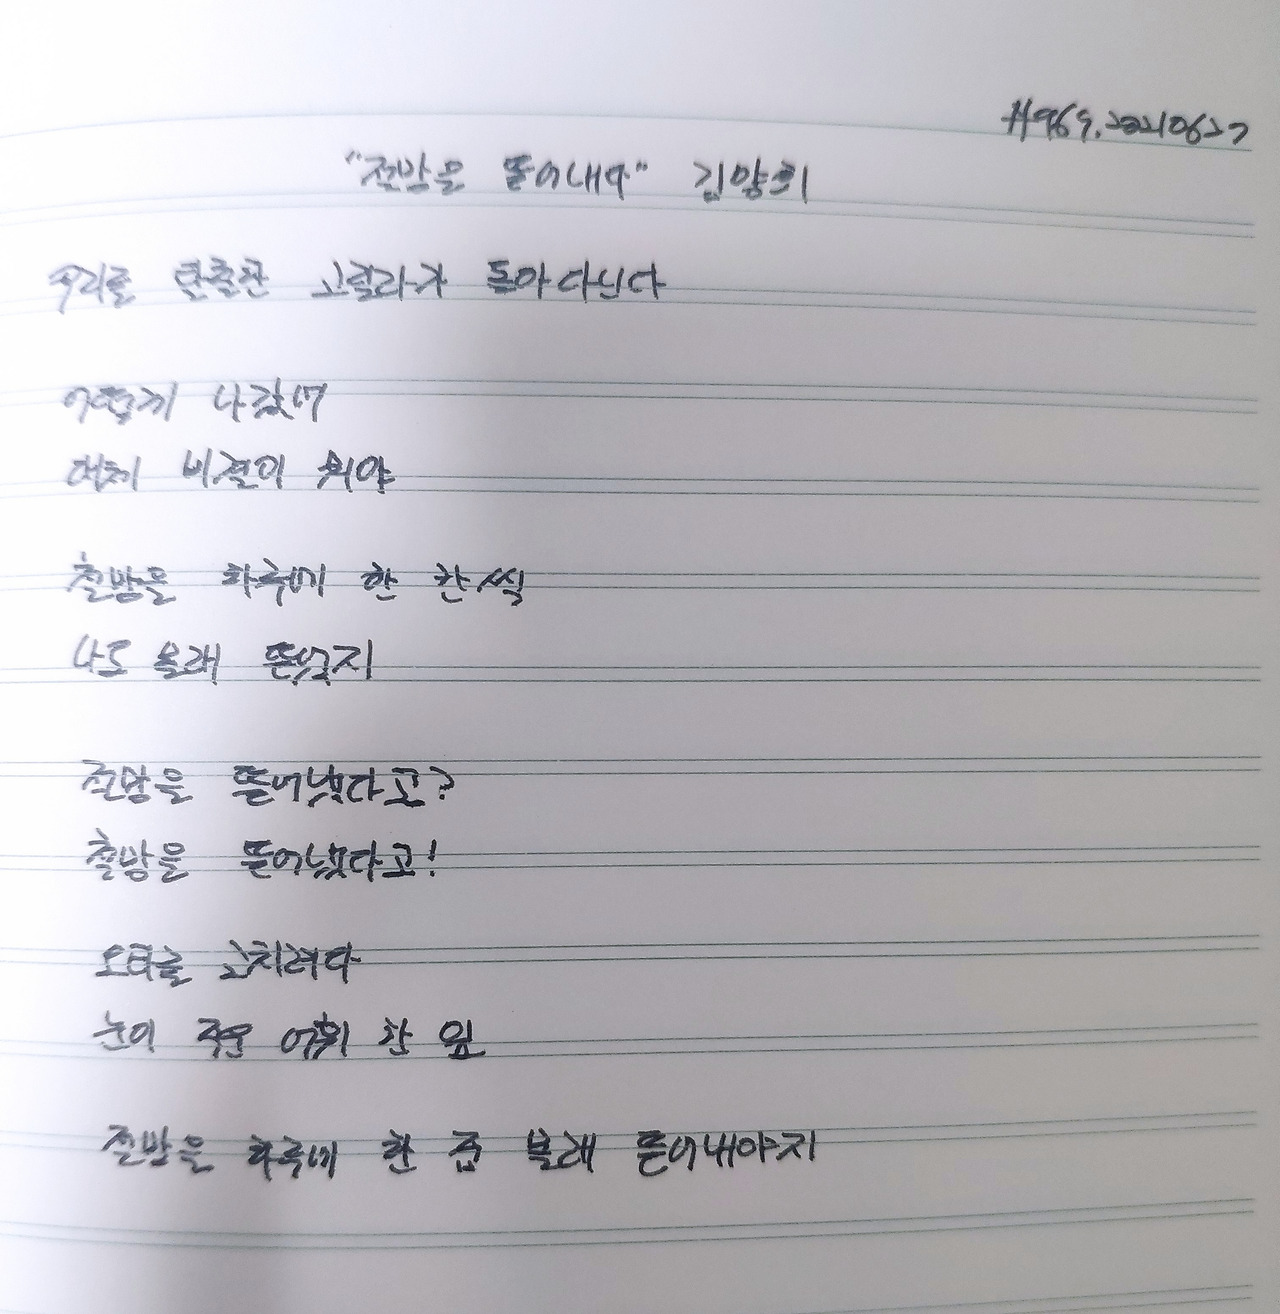 #969.20210627
"절망을 뜯어내다" 김양희
우리를 탈출한 고릴라가 돌아다닌다
어떻게 나갔어
대체 비결이 뭐야
철망을 하루에 한 칸씩
나도 몰래 뜯었지
절망을 뜯어냈다고?
철망을 뜯어냈다고!
오타를 고치려다
눈이 주운 어휘 한 잎
절망을 하루에 한 줌 몰래 뜯어내야지